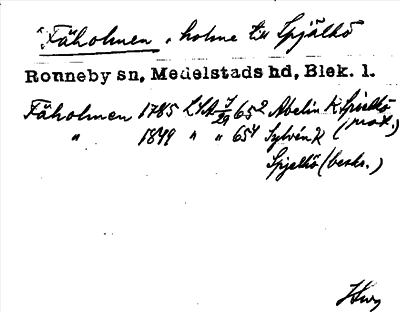 "Fäholmen, holme till Spjälkö
Ronneby sn, Medelstads hd, Blek. l.
Fäholmen 1785 LSA J/29 65² Abelin K Spielkö (prot.)
" 1849 " " 65⁴ Sylvén K
Spjelkö (beskr.)